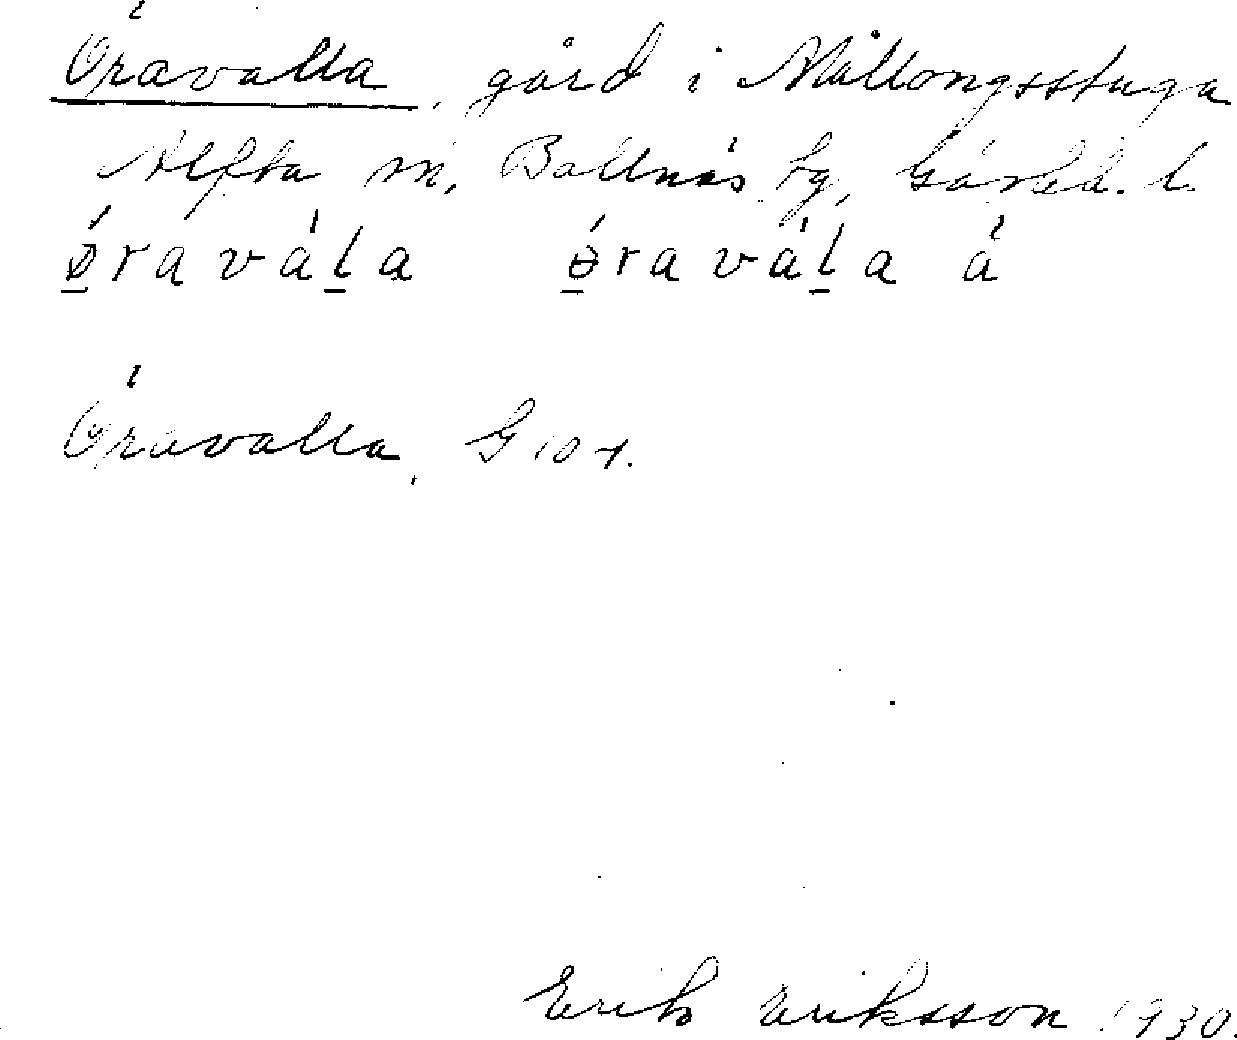 Öravalla, gård i Mållongsstuga
Alfta sn, Bollnäs tg, Gävleb. l.
ǿravàl̠a ɵ́ravàl̠a à
Öravalla, G 104.
Erik Eriksson 1930.